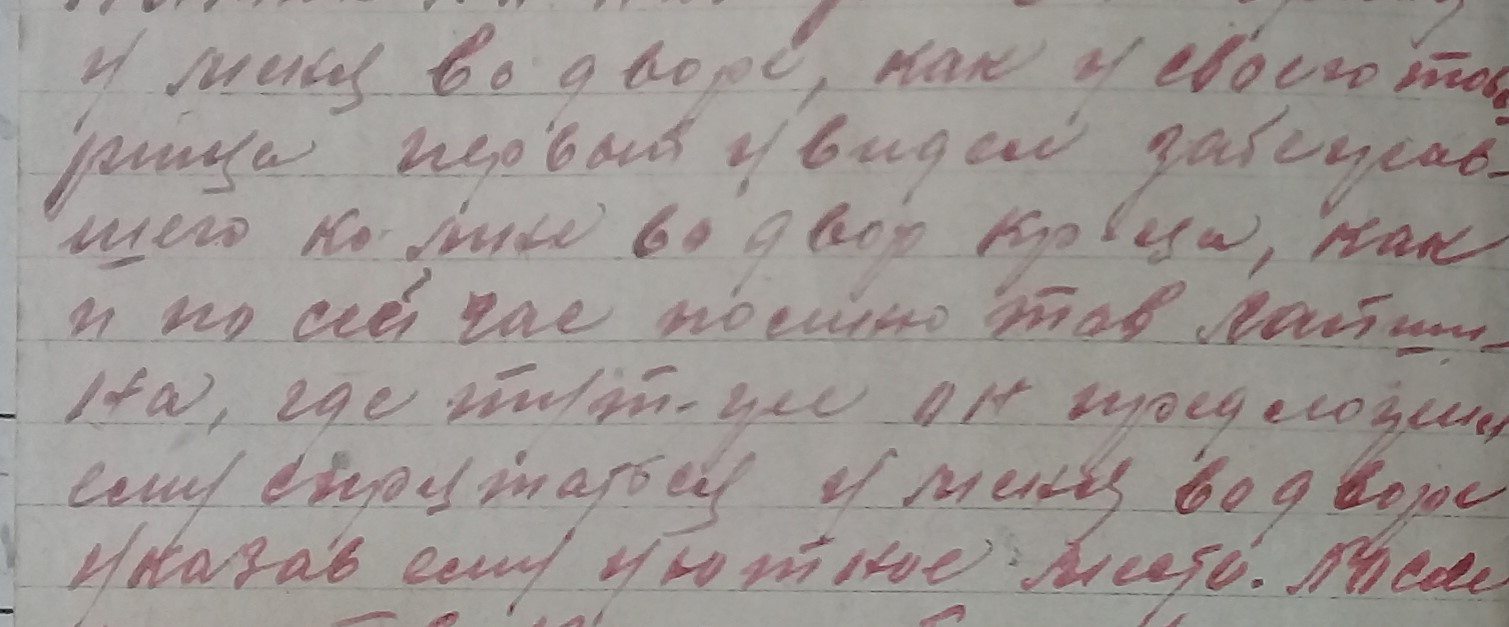 у меня во дворе, как у своего това
рища первый увидел забежав-
шего ко мне во двор кр
ца, как
и по сей час помню тов Латыш-
на, где тут-же он предложил
ему спрятаться у меня во дворе
указав ему уютное место. После